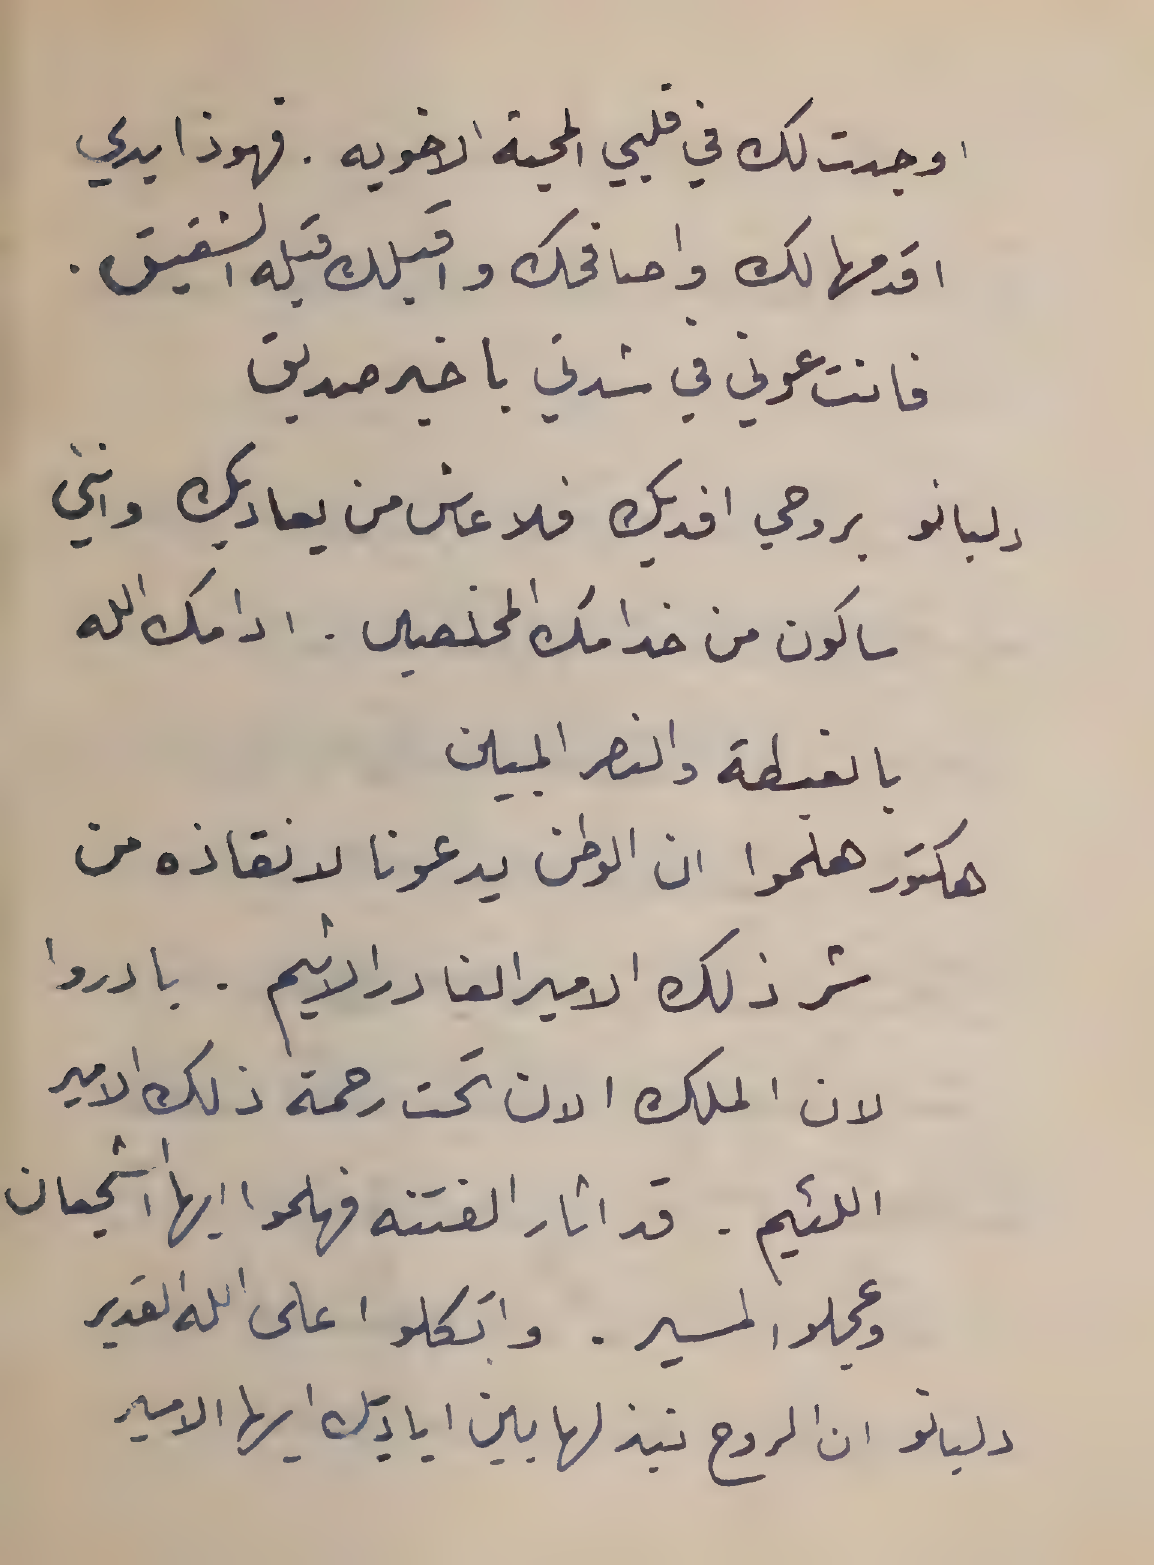 اوجدت لك في قلبي المحبة الاخويه . فهوذا يدي
اقدمها لك واصافحك واقبلك قبله الشقيق .
فانت عوني في شدتي يا خير صديق
دلبانو بروحي افديك فلا عاش من يعاديك وانني
ساكون من خدامك المخلصين . ادامك الله
بالغبطة والنصر المبين
هكتور هلموا ان الوطن يدعونا لانقاذه من
شر ذلك الامير الغادر الاثيم . بادروا
لان الملك الان تحت رحمة ذلك الامير
اللئيم . قد اثار الفتنه فهلموا ايها الشجعان
وعجلوا المسير . واتكلوا على الله القدير
دلبانو ان الروح نبذلها بين اياديك ايها الامير